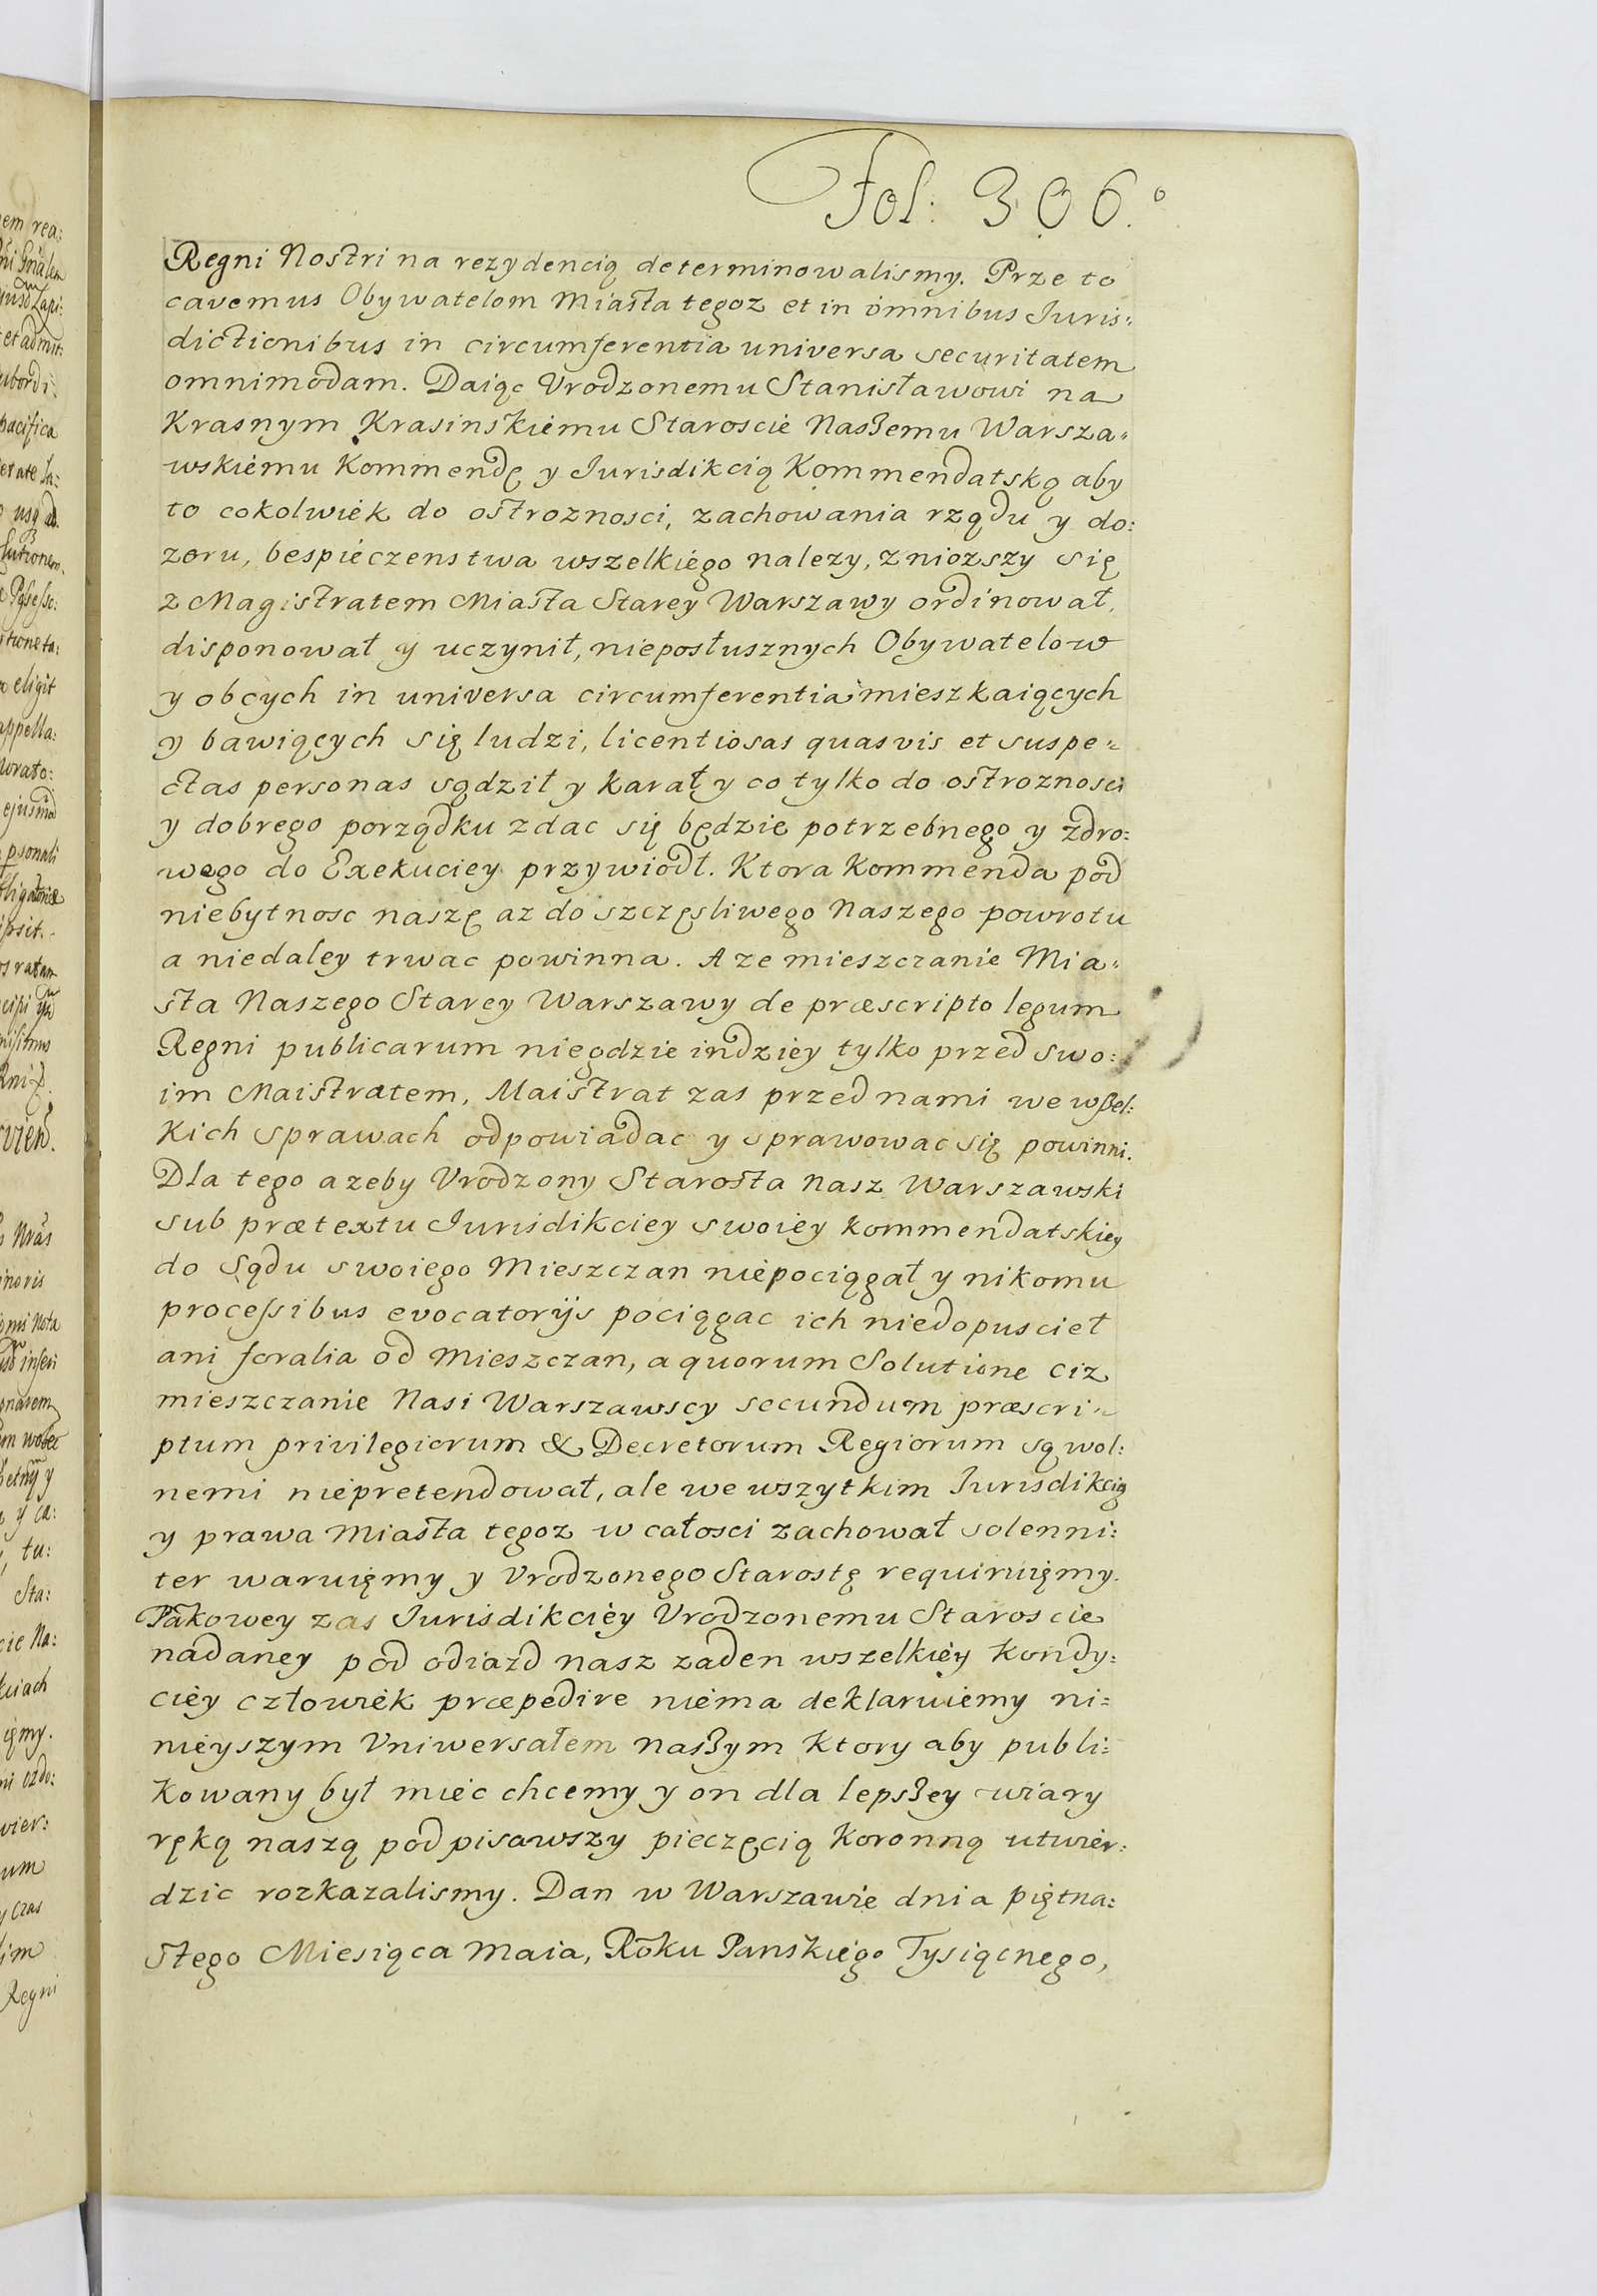 Fol: 306.o
Regni Nostri na rezydencią determinowalismy. Prze to
cavemus Obywatelom Miasta tegoz et in omnibus Juris:
dictionibus in circumferentia universa securitatem
omnimodam. Daiąc Vrodzonemu Stanisławowi na
Krasnym Krasinskiemu Staroscie Naszemu Warsza=
wskiemu Kommendę y Jurisdikcią Kommendatską aby
to cokolwiek do ostroznosci, zachowania rządu y do:
zoru, bespieczenstwa wszelkiego nalezy, zniozszy się
z Magistratem Miasta Starey Warszawy ordinował,
disponował y uczynił, nieposłusznych Obywatelow
y obcych in universa circumferentia mieszkaiących
y bawiących się ludzi, licentiosas quasvis et suspe=
ctas personas sądził y karał y co tylko do ostroznosci
y dobrego porządku zdac się będzie potrzebnego y zdro:
wego do Exekuciey przywiodł. Ktora Kommenda pod
niebytnosc naszę az do szczęsliwego Naszego powrotu
a niedaley trwac powinna. A ze mieszczanie Mia=
sta Naszego Starey Warszawy de præscripto legum
Regni publicarum niegdzie indziey tylko przed swo:
im Maistratem, Maistrat zas przed nami we wßel:
kich sprawach odpowiadac y sprawowac się powinni.
Dla tego azeby Vrodzony Starosta Nasz Warszawski
sub prætextu Jurisdikciey swoiey kommendatskiey
do Sądu swoiego Mieszczan niepociągał y nikomu
processibus evocatorijs pociągac ich niedopusciel
ani foralia od Mieszczan, a quorum Solutione ciz
mieszczanie Nasi Warszawscy secundum præscri=
ptum privilegiorum & Decretorum Regiorum są wol:
nemi niepretendował, ale we wszytkim Jurisdikcią
y prawa Miasta tegoz w całosci zachował solenni:
ter waruięmy y Vrodzonego Starostę requiruięmy.
Takowey zas Jurisdikciey Vrodzonemu Staroscie
nadaney pod odiazd nasz zaden wszelkiey Kondy:
ciey człowiek præpedire niema deklaruiemy ni=
nieyszym Vniwersałem naszym Ktory aby publi:
kowany był miec chcemy y on dla lepszey wiary
ręką naszą podpisawszy pieczęcią Koronną utwier:
dzic rozkazalismy. Dan w Warszawie dnia piętna:
stego Miesiąca Maia, Roku Panskiego Tysiącnego,